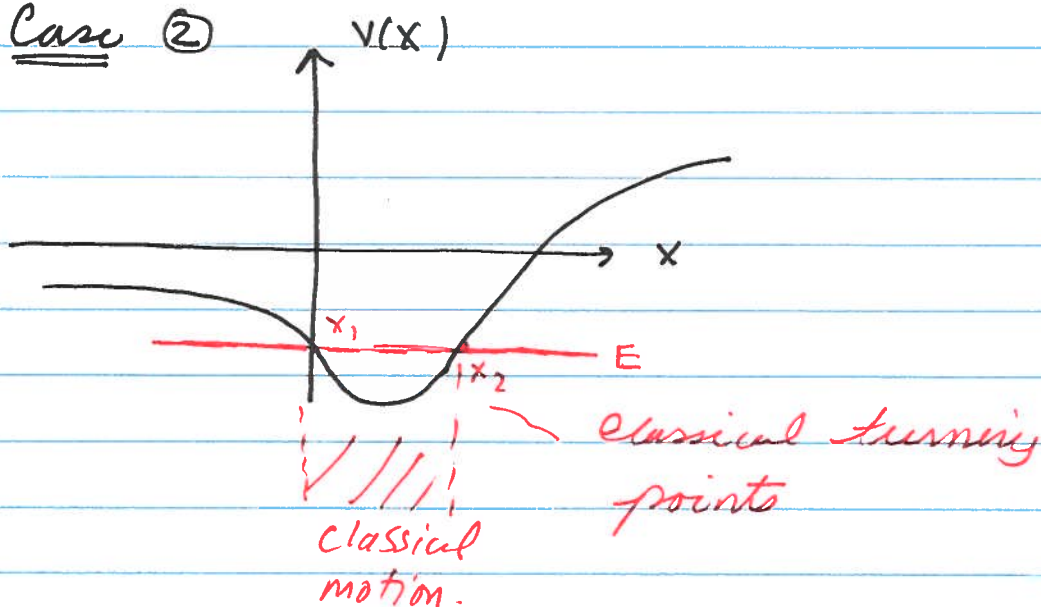 Case ②
V(x)
x
x₁
E
x₂
classical turning
points
classical
motion.